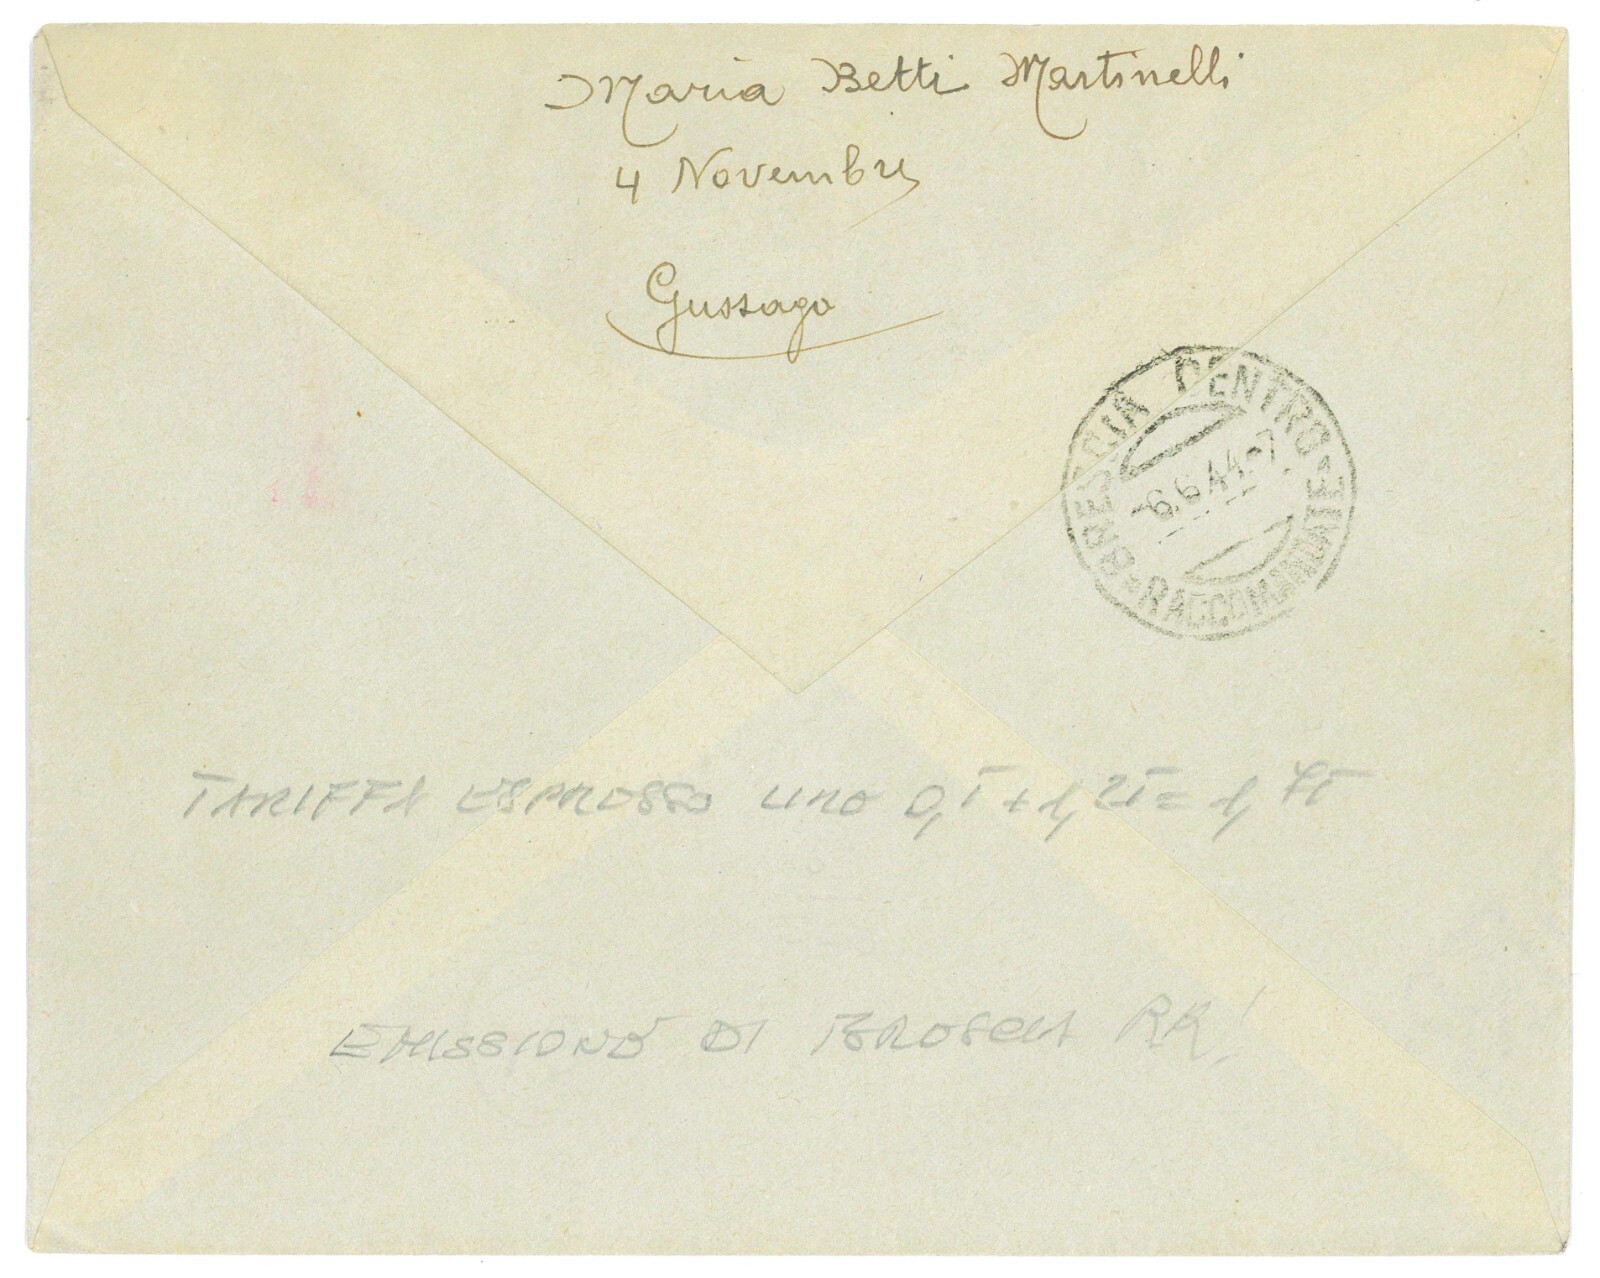 Maria Betti Martinelli
4 Novembre
Gussago
BRESCIA CENTRO
-6.6.44-7
RACCOMANDATE
TARIFFA ESPRESSO
EMISSIONE DI BRESCIA RR!